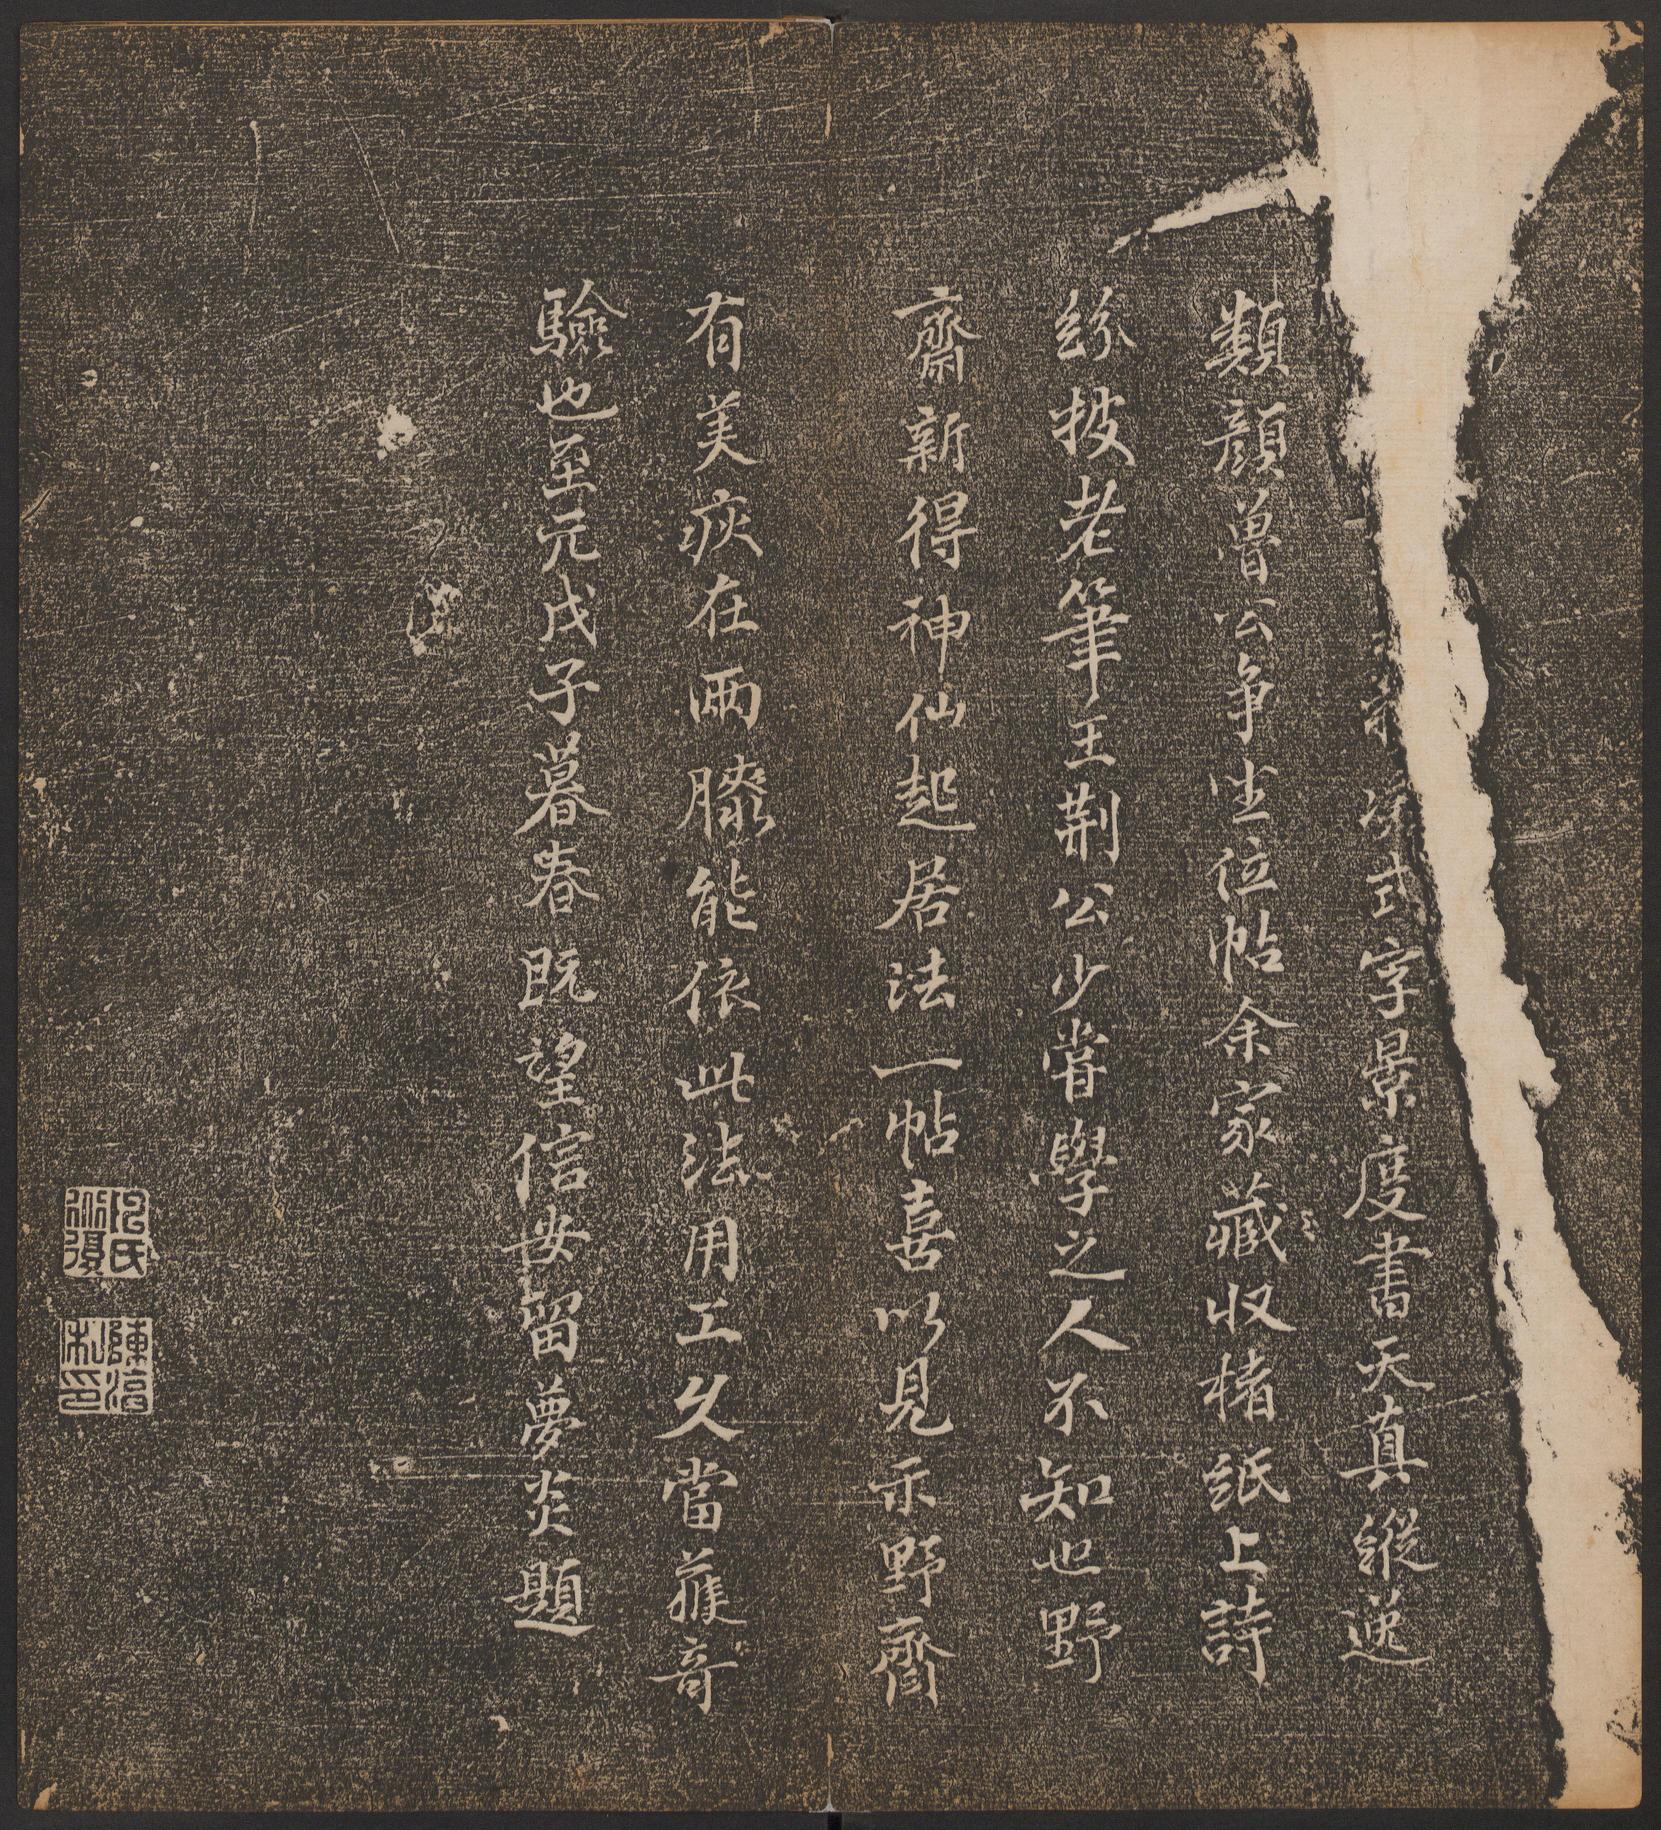 式字景度書天真縱逸
類顏魯公爭坐位帖余家藏收楮紙上詩
紛披老筆王荊公少嘗學之人不知也野
齋新得神仙起居法一帖喜以見示野齋
有美疢在兩膝能依此法用工久當獲奇
驗也至元戊子暮春既望信安留夢炎題